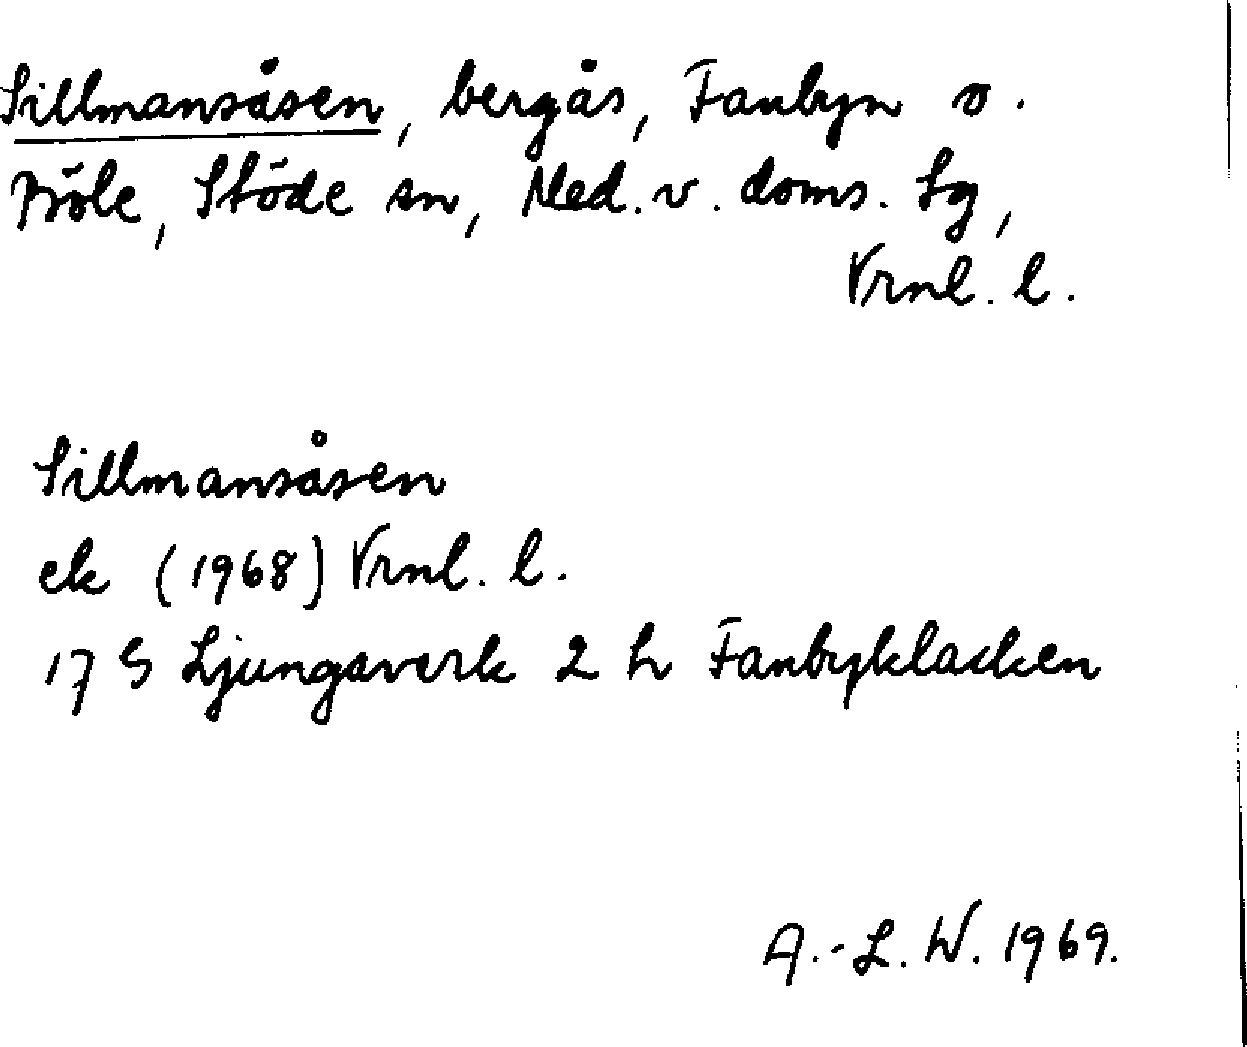 Sillmansåsen, bergås, Fanbyn o.
Böle, Stöde sn, Med. v. doms. Lg,
Vrnl. l.
Sillmansåsen
ek (1968) Vrnl. l.
17 S Ljungaverk 2 h Fanbyklacken
A.-L. W. 1969.